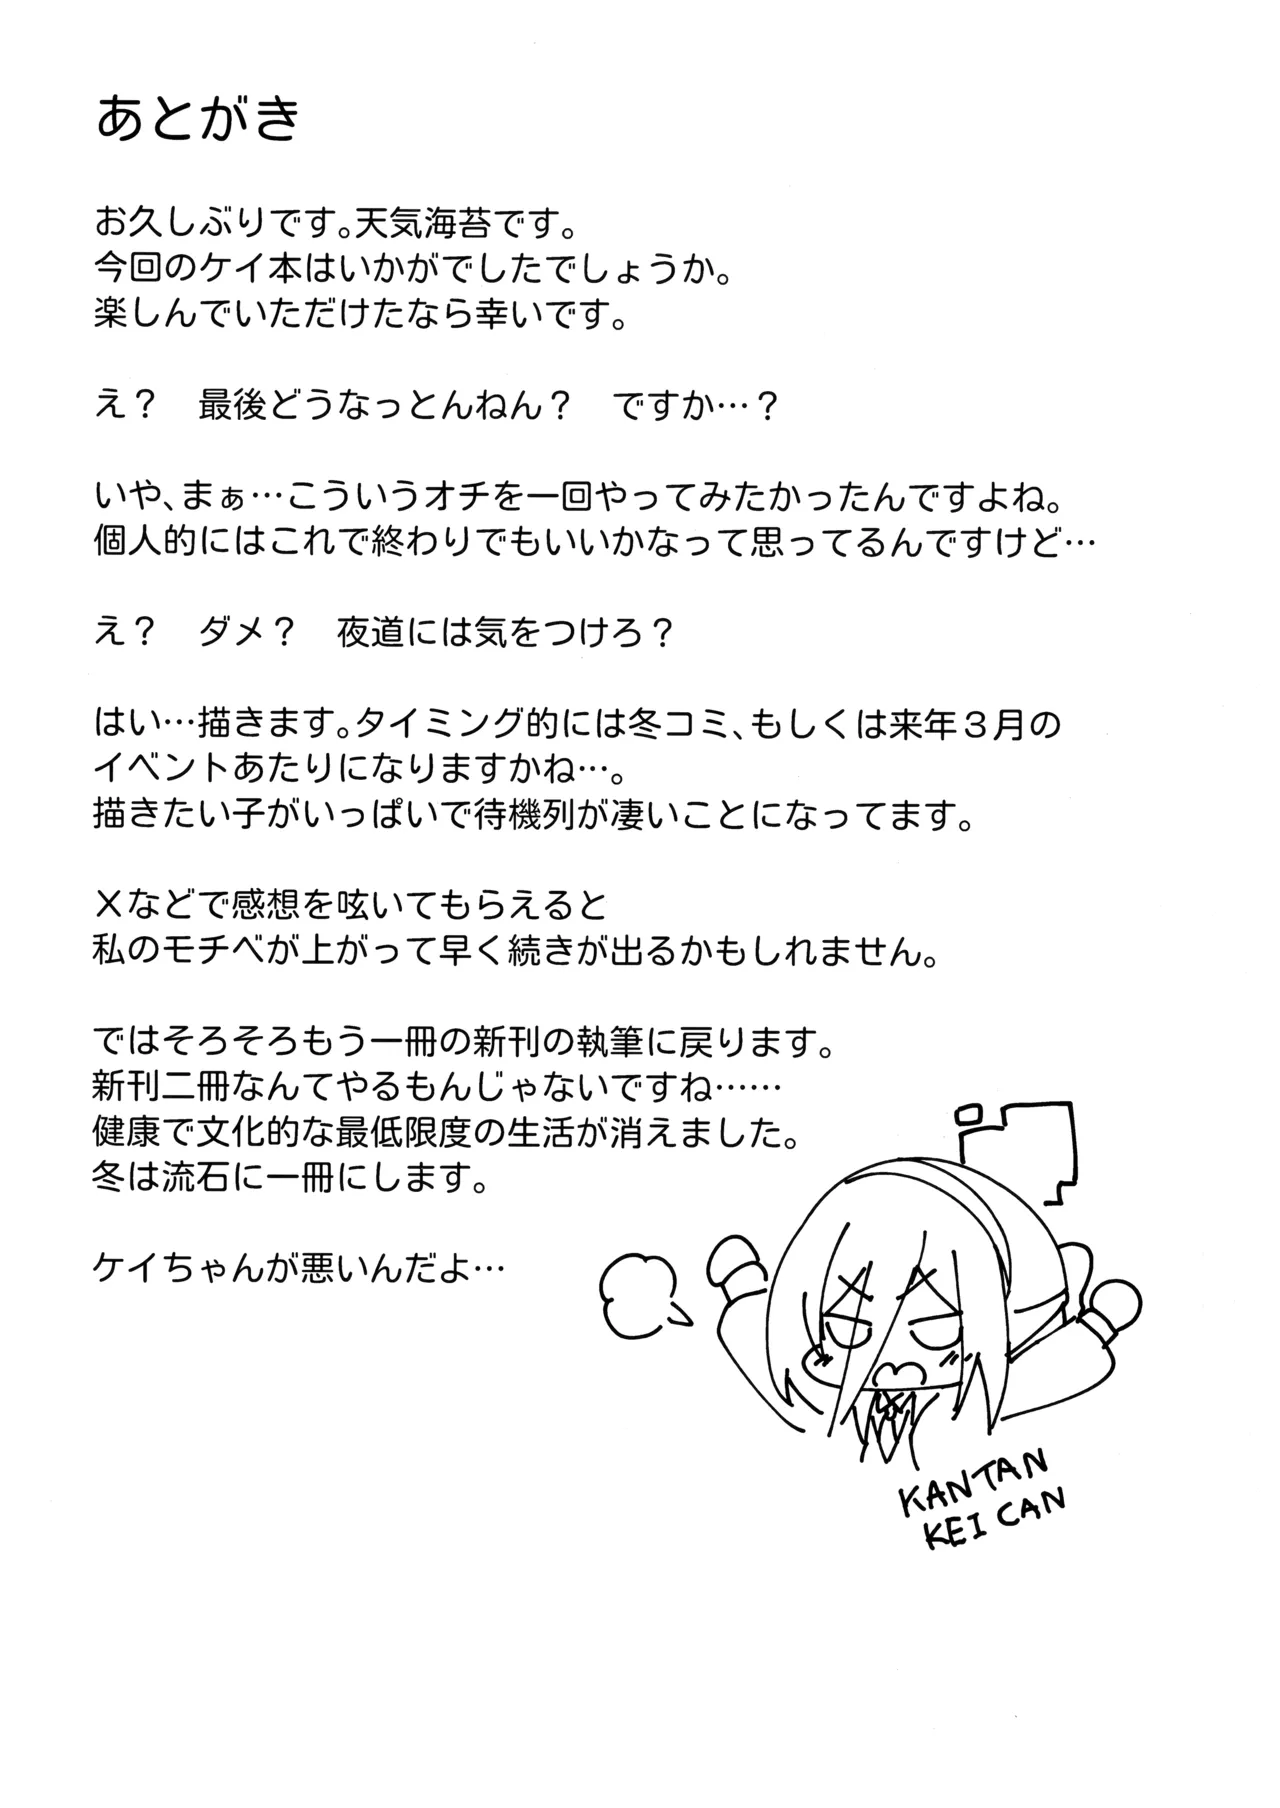 あとがき
お久しぶりです。天気海苔です。
今回のケイ本はいかがでしたでしょうか。
楽しんでいただけたなら幸いです。
え？　最後どうなっとんねん？　ですか…？
いや、まぁ…こういうオチを一回やってみたかったんですよね。
個人的にはこれで終わりでもいいかなって思ってるんですけど…
え？　ダメ？　夜道には気をつけろ？
はい…描きます。タイミング的には冬コミ、もしくは来年３月の
イベントあたりになりますかね…。
描きたい子がいっぱいで待機列が凄いことになってます。
Xなどで感想を呟いてもらえると
私のモチベが上がって早く続きが出るかもしれません。
ではそろそろもう一冊の新刊の執筆に戻ります。
新刊二冊なんてやるもんじゃないですね……
健康で文化的な最低限度の生活が消えました。
冬は流石に一冊にします。
ケイちゃんが悪いんだよ…
KANTAN
KEI CAN